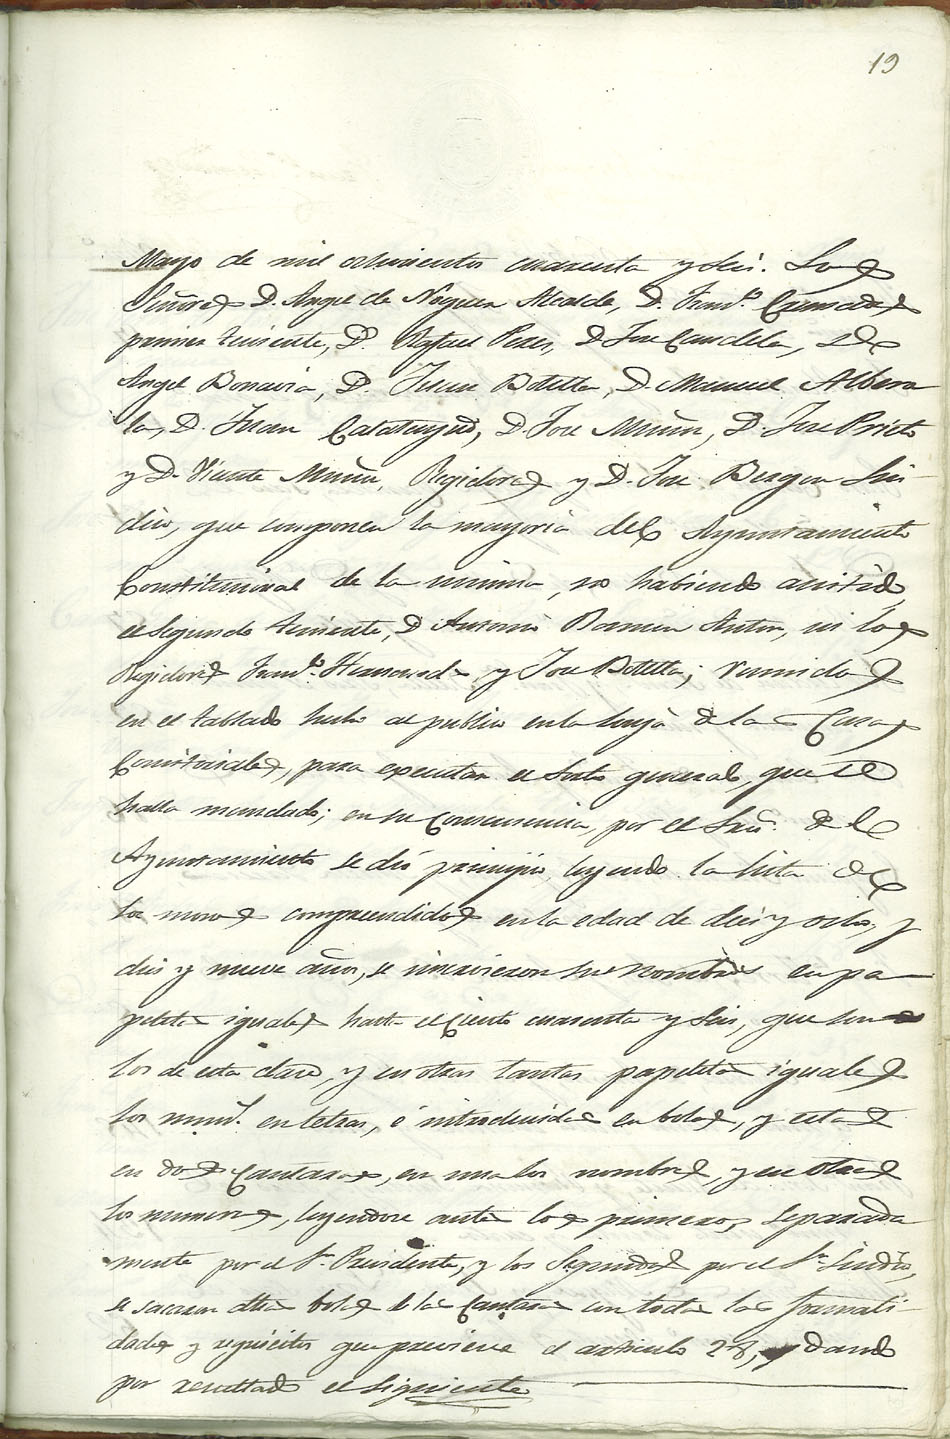 19
Mayo de mil ochocientos cuarenta y seis. Los
Señores D. Angel de Noguera Alcalde, D. Fran.co
primer teniente, D. Rafael Perez, D Jose Candela, D
Angel Bonavia, D. Juan Botella, D. Manuel Albero
la, D. Juan Calatayud, D. Jose Muñoz, D. Jose Prieto
y D. Vicente Muñoz, Regidores y D. Jose Sin-
dico, que componen la mayoria del Ayuntamiento
Constitucional de la misma, no habiendo asistido
el Segundo teniente, D Antonio Anton, ni los
Regidores Fran.co y Jose Botella; reunidos
en el tablado hecho al publico en la lonja de las Casas
Consistoriales, para executar el Sorteo general, que se
halla mandado; en su Consecuencia, por el Srio. del
Ayuntamiento se dió principio leyendo la lista de
los mozos comprendidos en la edad de diez y ocho, y
diez y nueve años, se inscrivieron sus nombres en pa
peletas iguales hasta el Ciento cuarenta y seis, que son
los de esta clase, y en otras tantas papeletas iguales
los num.s en letras, é introducidas en bolas, y estas
en dos Cantaros, en uno los nombres, y en otro
los numeros, leyendose antes los primeros, separada
mente por el S.or Presidente, y los Segundos por el S.or Sindico,
se sacaron dhas bolas de los Cantaros con todas las formali-
dades y requisitos que previene el articulo 28, y dando
por resultado el siguiente